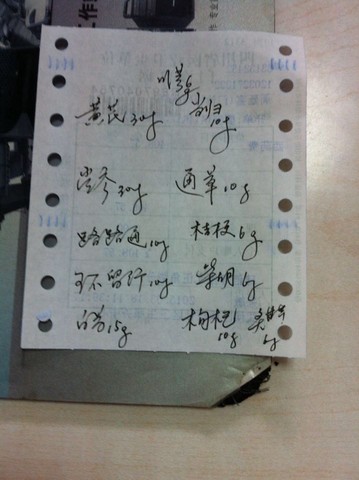 川芎6g
黄芪30g 当归10g
党参30g 通草10g
路路通10g 桔梗6g
王不留行10g 柴胡6g
白芍15g 枸杞10g 炙甘草6g